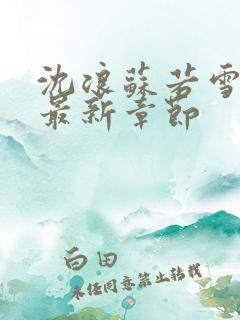 沈浪蘇若雪
最新章節
白田
未经同意禁止转载